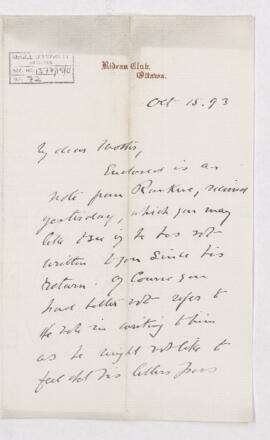 Rideau Club,
Ottawa.
Oct 15. 93
My dear
Enclosed is a
note from received
yesterday, which you may
like to see if he has not
written to you since his
return. Of Course you
had better not refer to
the note in writing to him
as he might not like to
feel that his letters